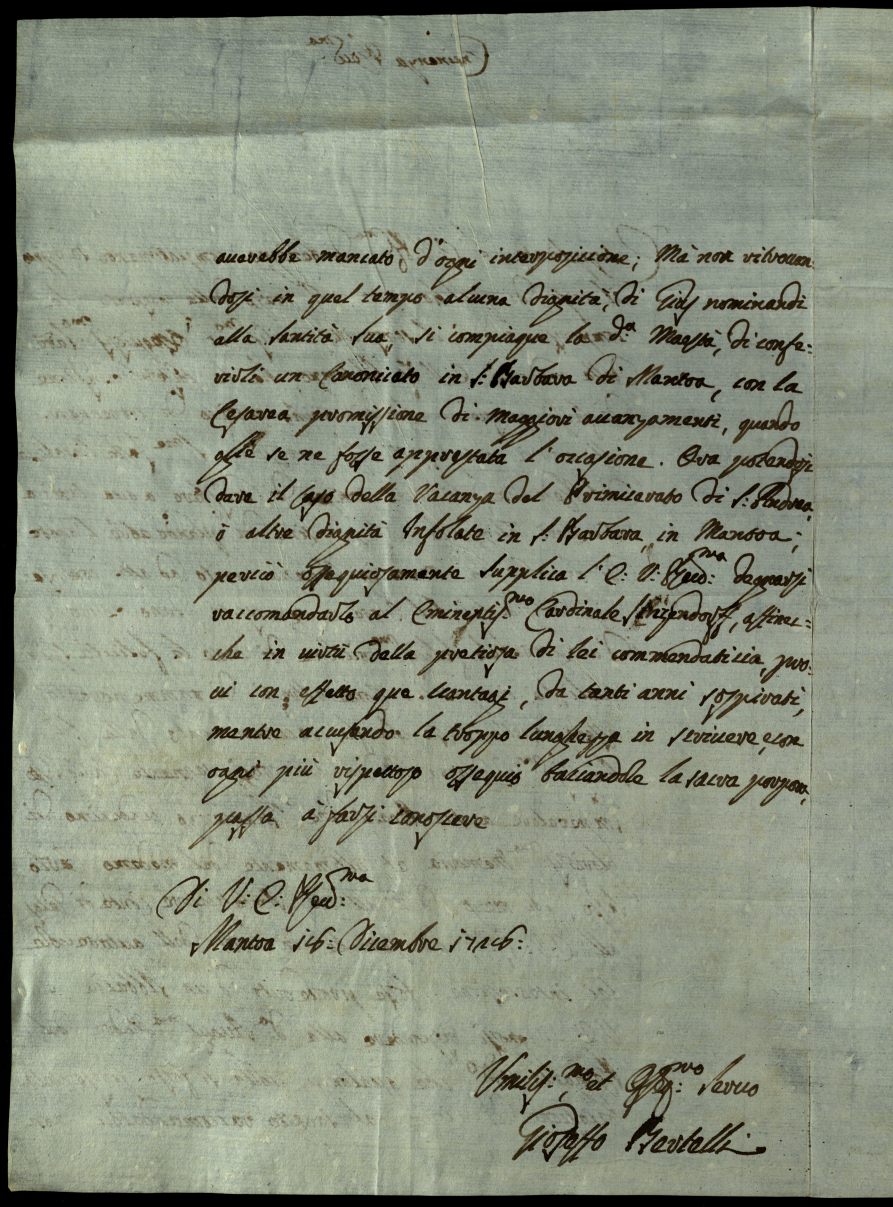 auerebbe mancato d'ogni interposicione; Mà non ritrouan=
dosi in quel tempo alcuna dignità, di Gius nominandi
alla Santità Sua, si compiaque la d.ª Maestà, di confe=
rirli un Canonicato in S: Barbara di Mantoa, con la
Cesarea promissione di maggiori auanzamenti, quando
esse se ne fosse apprestata l'occasione. Ora potendosi
dare il caso della Vacanza del Primicerato di S: Andrea,
ò altre dignità Infolate in S: Barbara, in Mantoa;
perciò ossequiosamente supplica l'E: V: Reu:ma degnarsi
raccomandarlo al Eminentis:mo Cardinale, affinc=
che in uirtù della pretiosa di lei commendaticia, pro=
ui con effetto que uantagi, da tanti anni sospirati,
mentre accusando la troppo lunghezza in scriuere, e con
ogni più rispettoso ossequio baciandole la sacra porpora,
passa à farsi conoscere
Di V: E: Reu:ma
Mantoa 16: Dicembre
Vmilis:mo et Osseq:mo Seruo
Gioseffo Bertelli